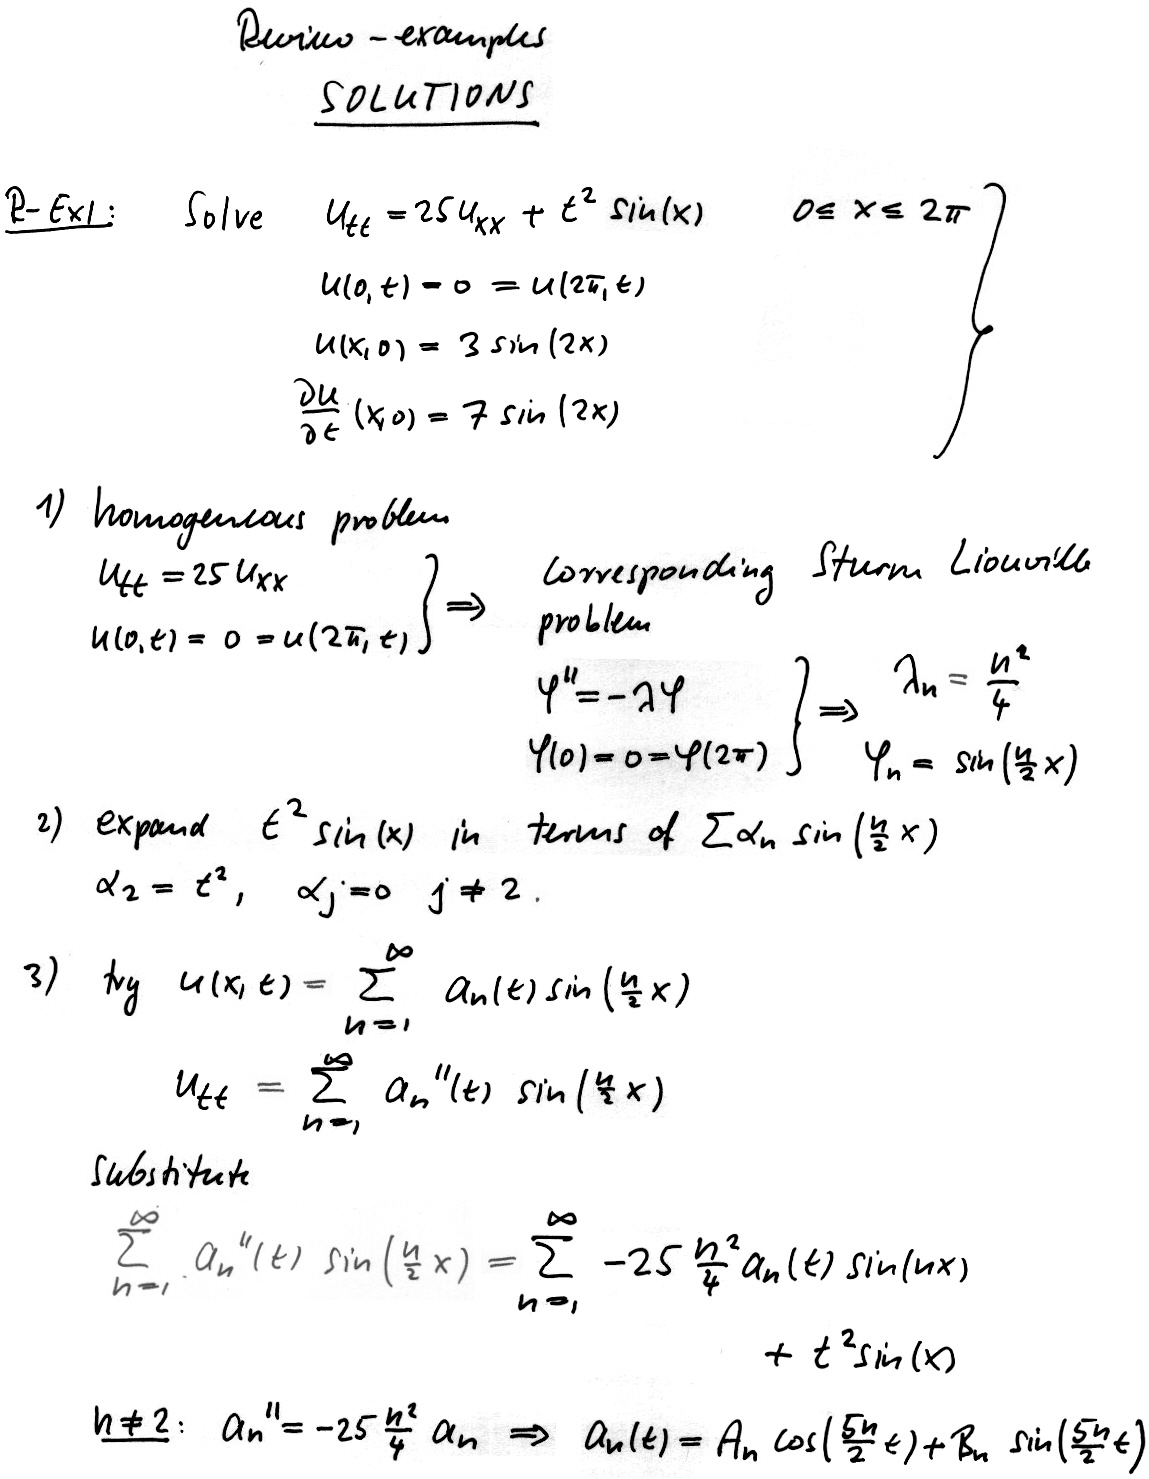 Review - examples
SOLUTIONS
R-Ex1: Solve u_tt = 25 u_xx + t² sin(x) 0 ≤ x ≤ 2π
u(0,t) = 0 = u(2π,t)
u(x,0) = 3 sin(2x)
∂u/∂t (x,0) = 7 sin(2x)
1) homogeneous problem
u_tt = 25 u_xx
u(0,t) = 0 = u(2π,t) } ⇒
corresponding Sturm Liouville
problem
φ'' = -λφ
φ(0) = 0 = φ(2π) } ⇒
λ_n = n²/4
φ_n = sin(n/2 x)
2) expand t² sin(x) in terms of Σ α_n sin(n/2 x)
α_2 = t², α_j = 0 j ≠ 2.
3) try u(x,t) = Σ_{n=1}^∞ a_n(t) sin(n/2 x)
u_tt = Σ_{n=1}^∞ a_n''(t) sin(n/2 x)
substitute
Σ_{n=1}^∞ a_n''(t) sin(n/2 x) = Σ_{n=1}^∞ -25 n²/4 a_n(t) sin(nx)
+ t² sin(x)
n ≠ 2: a_n'' = -25 n²/4 a_n ⇒ a_n(t) = A_n cos(5n/2 t) + B_n sin(5n/2 t)